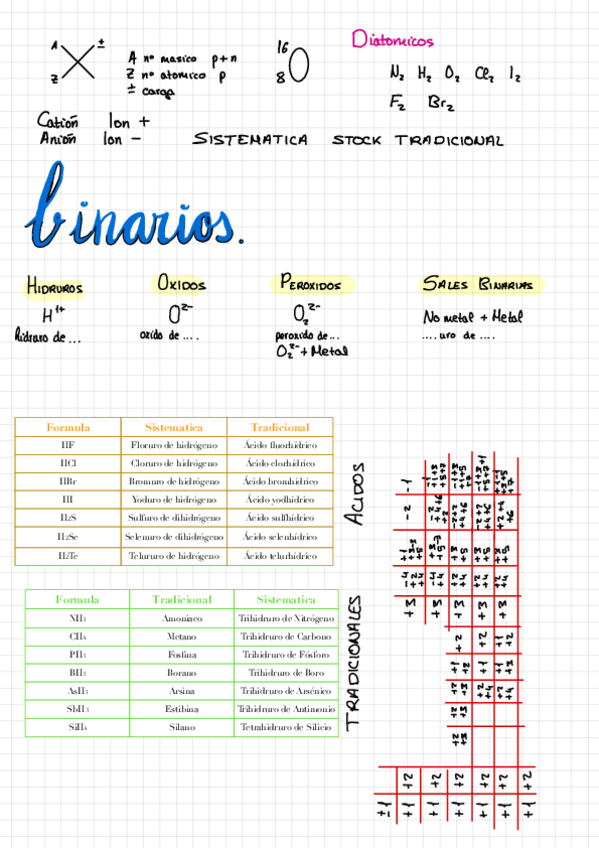 A ± A nº masico p+n
Z Z nº atomico p
± carga
16
8
Diatomicos
N₂ H₂ O₂ Cl₂ I₂
F₂ Br₂
Catión Ion +
Anión Ion -
SISTEMATICA STOCK TRADICIONAL
binarios.
HIDRUROS OXIDOS PEROXIDOS SALES BINARIAS
H¹⁺ O²⁻ O₂²⁻ No metal + Metal
hidruro de ... oxido de .... peroxido de ... .... uro de ....
O₂²⁻ + Metal
Formula Sistematica Tradicional
HF Floruro de hidrógeno Ácido fluorhídrico
HCl Cloruro de hidrógeno Ácido clorhídrico
HBr Bromuro de hidrógeno Ácido bromhídrico
HI Yoduro de hidrógeno Ácido yodhídrico
H₂S Sulfuro de dihidrógeno Ácido sulfhídrico
H₂Se Selenuro de dihidrógeno Ácido selenhídrico
H₂Te Telururo de hidrógeno Ácido telurhídrico
ACIDOS
Formula Tradicional Sistematica
NH₃ Amoniaco Trihidruro de Nitrógeno
CH₄ Metano Trihidruro de Carbono
PH₃ Fosfina Trihidruro de Fósforo
BH₃ Borano Trihidruro de Boro
AsH₃ Arsina Trihidruro de Arsénico
SbH₃ Estibina Trihidruro de Antimonio
SiH₄ Silano Tetrahidruro de Silicio
TRADICIONALES
±1
+1 +2
+1 +2
+1 +2
+1 +2
+1 +2
+1 +2